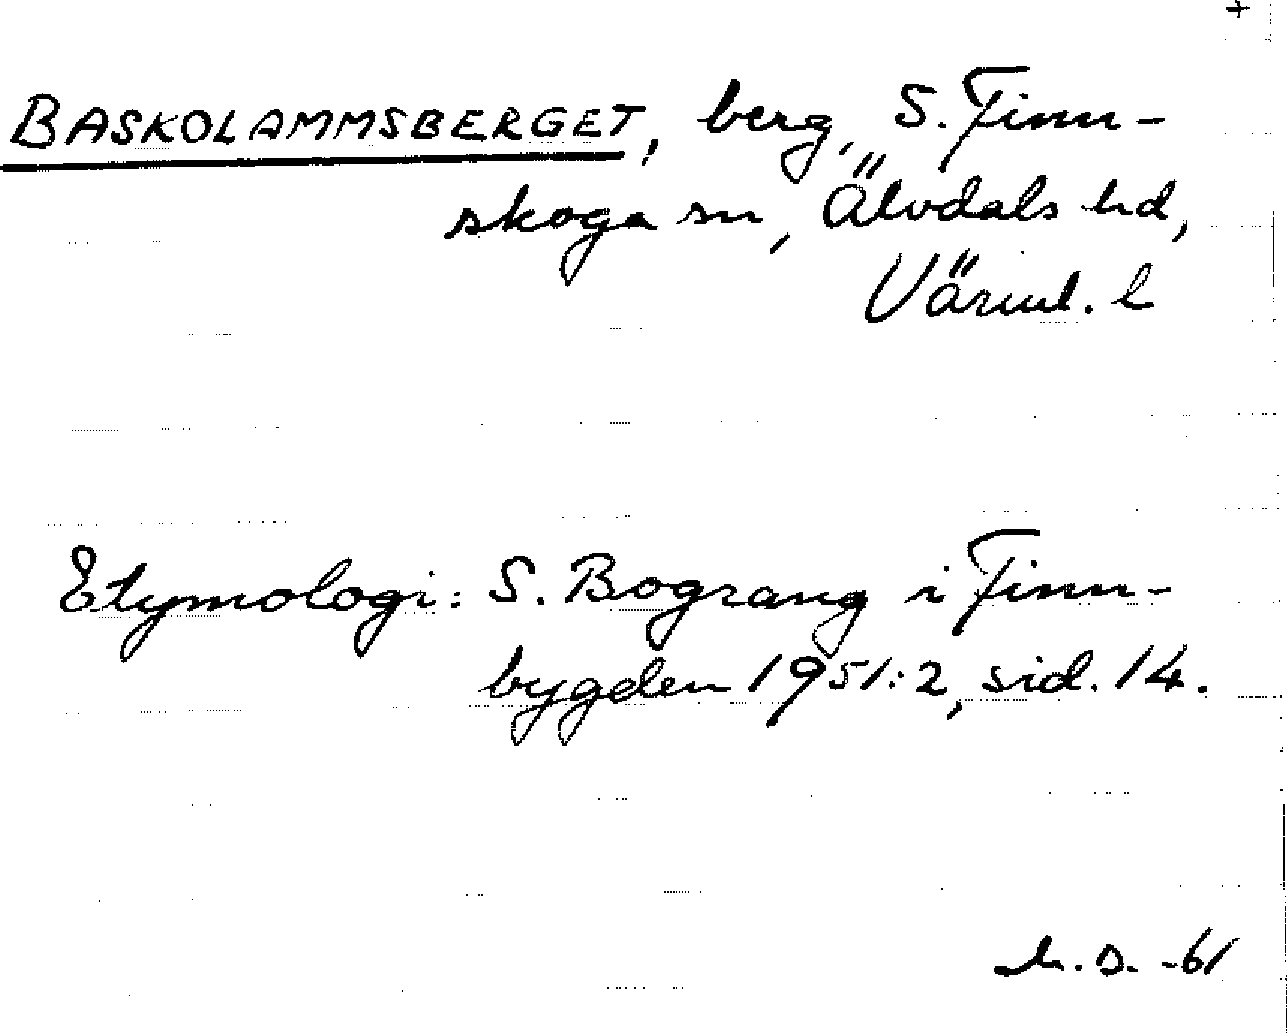 +
BASKOLAMMSBERGET, berg, S. Finn-
skoga sn, Älvdals hd,
Värml. l
Etymologi: S. Bograng i Finn-
bygden 1951:2, sid. 14.
-61